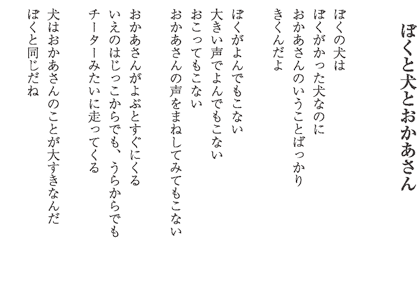 ぼくと犬とおかあさん
ぼくの犬は
ぼくがかった犬なのに
おかあさんのいうことばっかり
きくんだよ
ぼくがよんでもこない
大きい声でよんでもこない
おこってもこない
おかあさんの声をまねしてみてもこない
おかあさんがよぶとすぐにくる
いえのはじっこからでも、うらからでも
チーターみたいに走ってくる
犬はおかあさんのことが大すきなんだ
ぼくと同じだね